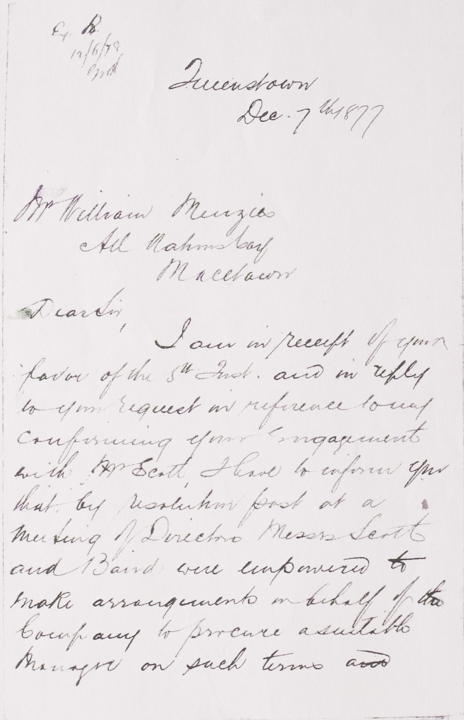 Ex. B
12/6/78
Queenstown
Dec. 7th 1877
Mr William Menzies
All Nations Coy
Macetown
Dear Sir,
I am in receipt of your
favor of the 5th Inst. and in reply
to your request in reference to my
confirming your Engagement
with Mr Scott, I have to inform you
that by resolution past at a
meeting of Directors Messrs Scott
and Baird were empowered to
make arrangements on behalf of the
Company to procure a suitable
Manager on such terms and